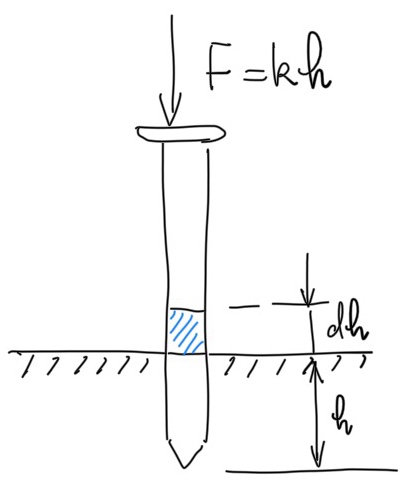 F = kh
dh
h